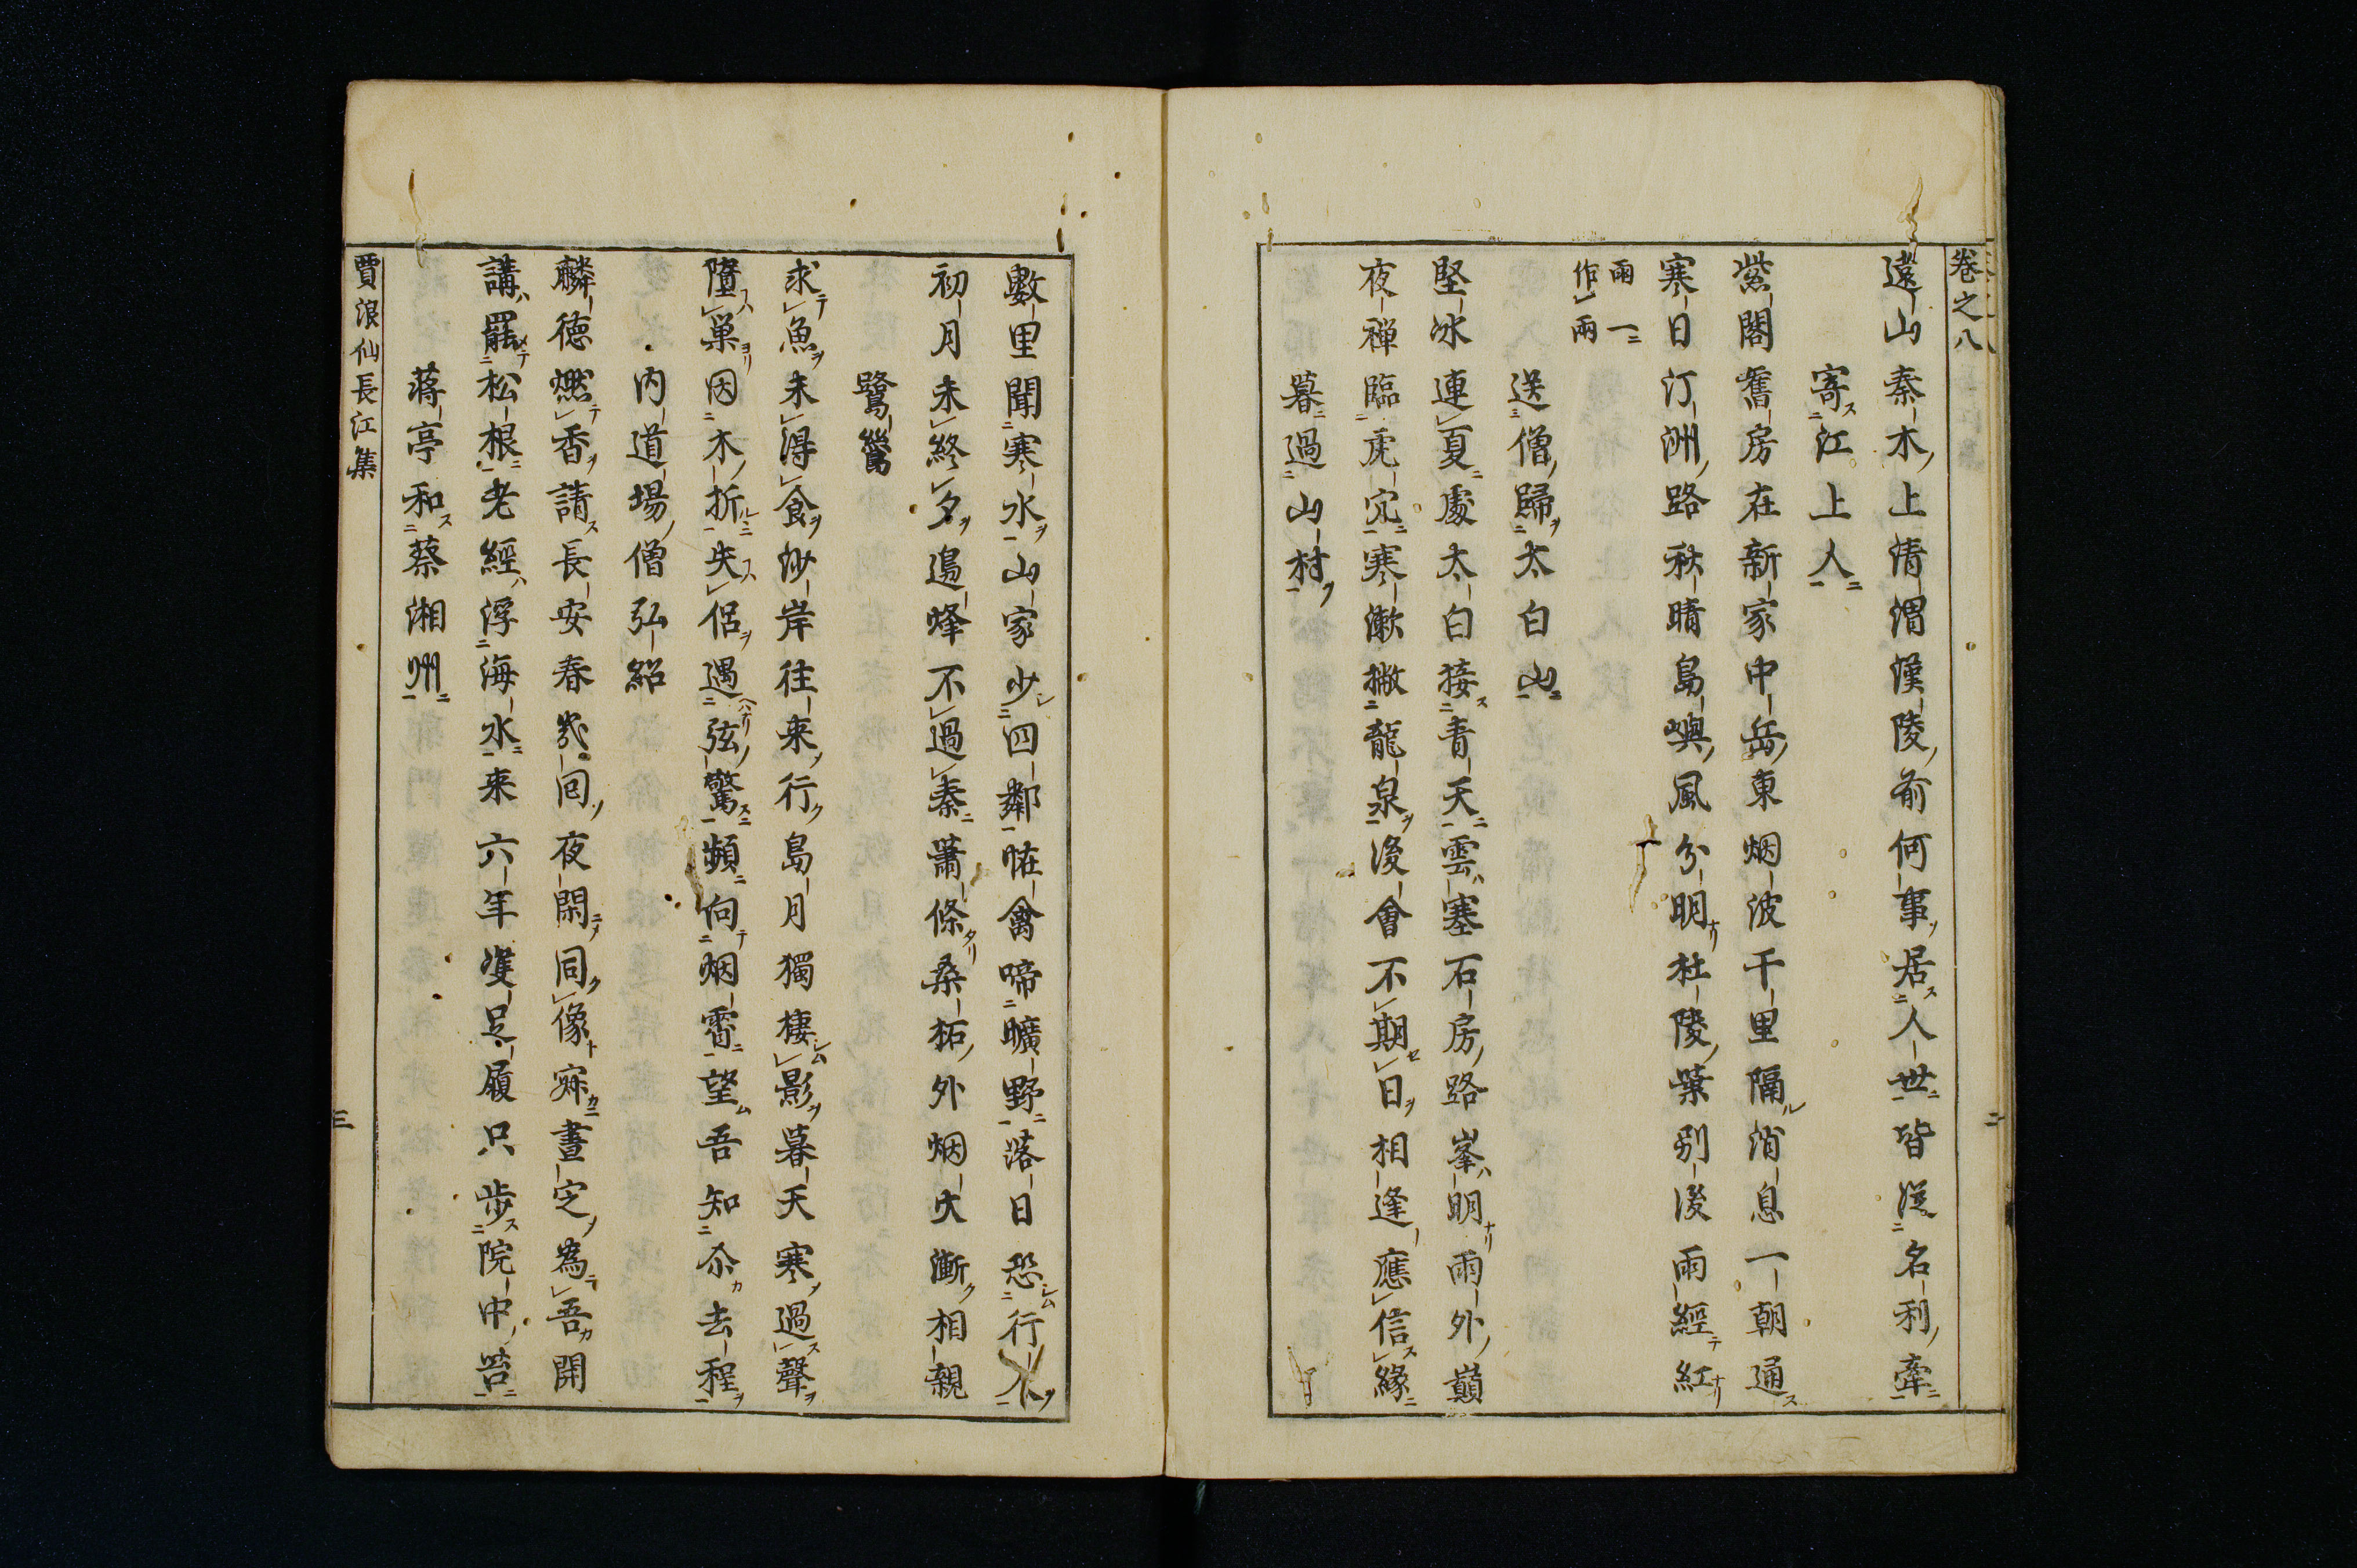 卷之八
二
遠山秦木上清渭漢陵前何事居人世皆從名利牽
寄江上人
紫閣舊房在新家中岳東烟波千里隔消息一朝通
寒日汀洲路秋晴島嶼風分明杜陵葉別後雨經紅
雨一
作兩
送僧歸太白山
堅冰連夏處太白接青天雲塞石房路峯明雨外巔
夜禪臨虎穴寒漱撇龍泉後會不期日相逢應信緣
暮過山村
數里聞寒水山家少四鄰怪禽啼曠野落日恐行人
初月未終夕邊烽不過秦蕭條桑柘外烟火漸相親
鷺鶿
求魚未得食沙岸往来行島月獨棲影暮天寒過聲
墮巢因木折失侶遇弦驚頻向烟霄望吾知尒去程
内道場僧弘紹
麟德燃香請長安春幾囘夜閑同像寂晝定為吾開
講罷松根老經浮海水来六年雙足履只步院中苔
蒋亭和蔡湘州
賈浪仙長江集
三